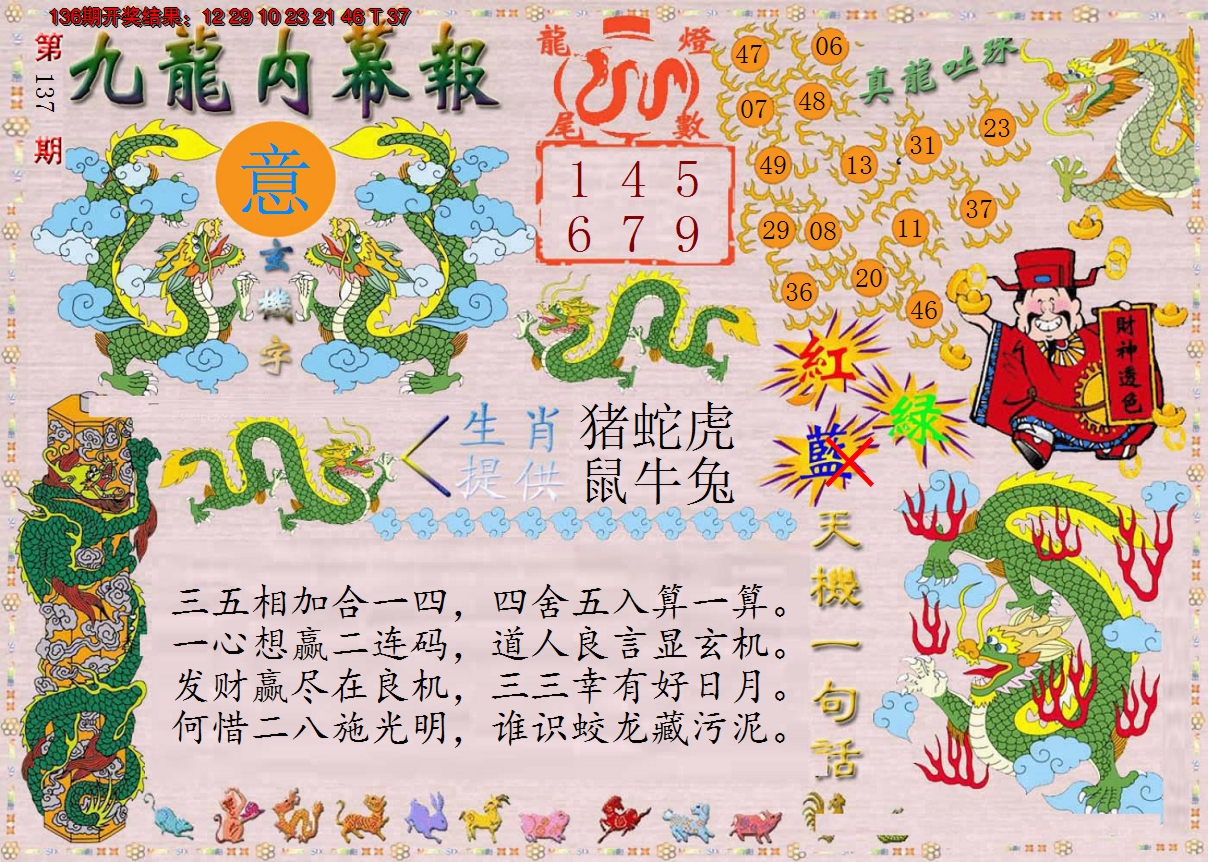 136期开奖结果：12 29 10 23 21 46 T 37
第137期
九龍内幕報
意
玄機字
龍燈
尾數
1 4 5
6 7 9
真龍吐珠
47
06
07
48
49
13
31
23
29
08
11
37
36
20
46
財神透色
紅
綠
藍
生肖
提供
猪蛇虎
鼠牛兔
天機一句話
三五相加合一四，四舍五入算一算。
一心想赢二连码，道人良言显玄机。
发财赢尽在良机，三三幸有好日月。
何惜二八施光明，谁识蛟龙藏污泥。